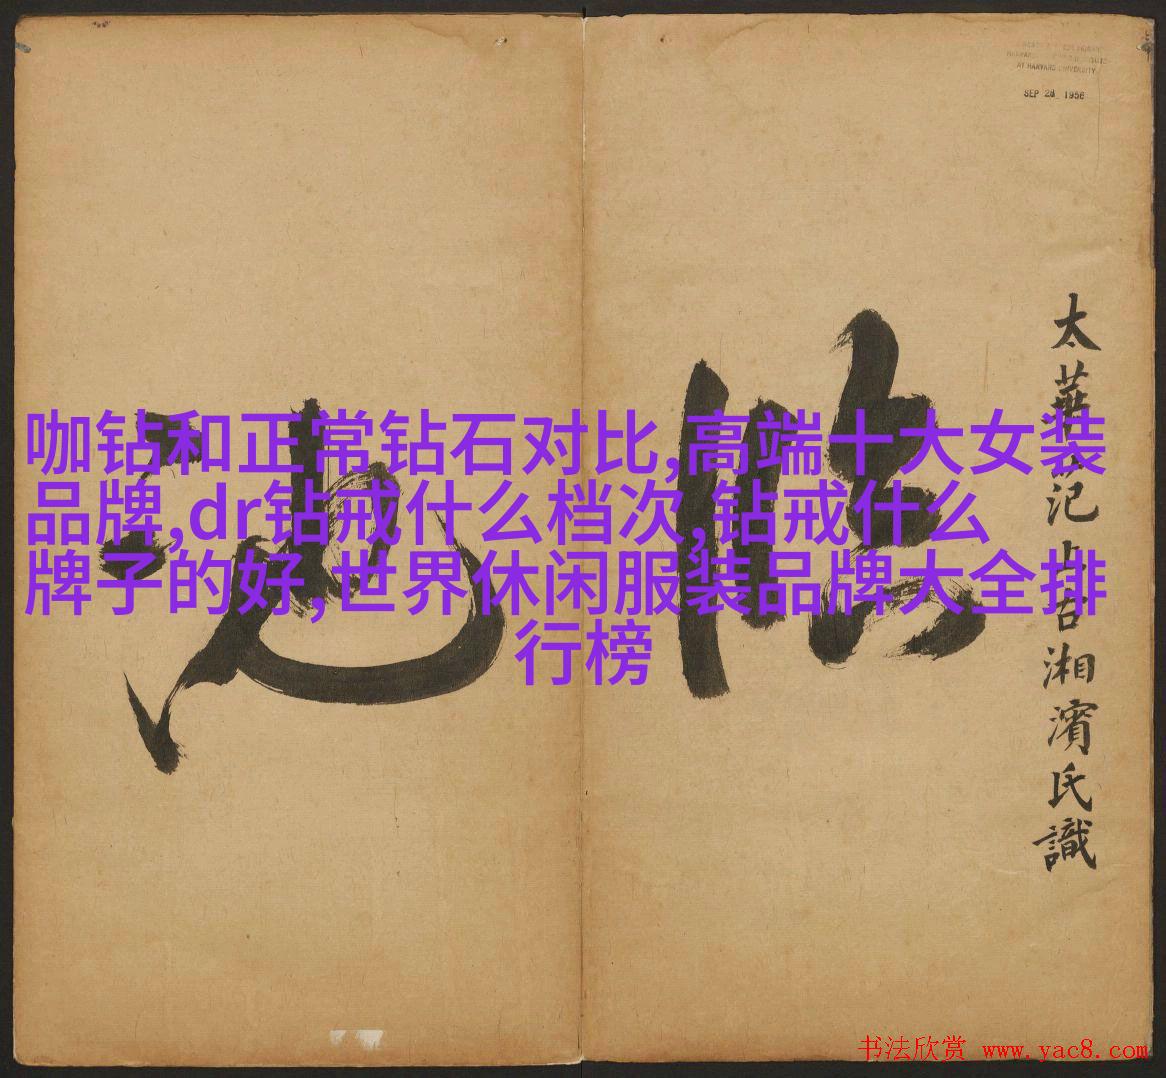 AT HARVARD UNIVERSITY
SEP 28 1956
咖钻和正常钻石对比,高端十大女装
品牌,dr钻戒什么档次,钻戒什么
牌子的好,世界休闲服装品牌大全排
行榜
太華 记 占吉湘濱氏識
书法欣赏 www.yac8.com